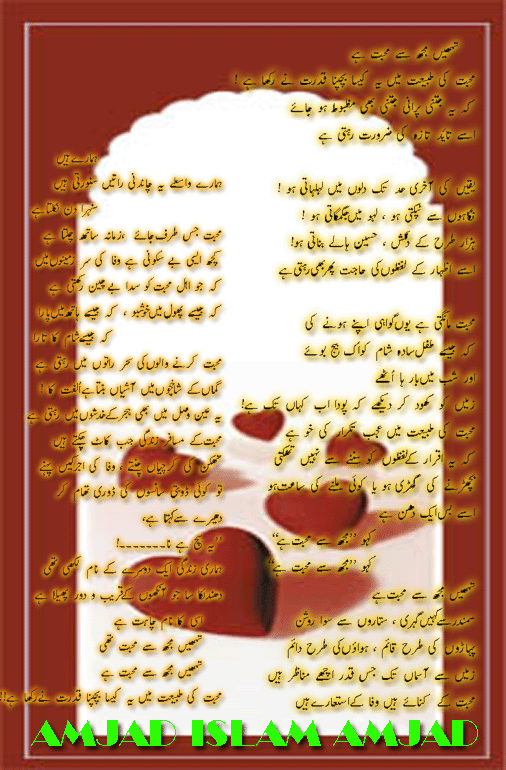 تمھیں مجھ سے محبت ہے
محبت کی طبیعت میں یہ کیسا بچپنا قدرت نے رکھا ہے !
کہ یہ جتنی پرانی جتنی بھی مضبوط ہو جائے
اسے تائید تازہ کی ضرورت رہتی ہے
یقیں کی آخری حد تک دلوں میں لہلہاتی ہو !
نگاہوں سے ٹپکتی ہو ، لہو میں جگمگاتی ہو !
ہزار طرح کے دلکش ، حسیں ہالے بناتی ہو!
اسے اظہار کے لفظوں کی حاجت پھر بھی رہتی ہے
محبت مانگتی ہے یوں گواہی اپنے ہونے کی
کہ جیسے طفل سادہ شام کو اک بیج بوئے
اور شب میں بار ہا اُٹھے
زمیں کو کھود کر دیکھے کہ پودا اب کہاں تک ہے!
محبت کی طبیعت میں عجب تکرار کی خو ہے
کہ یہ اقرار کے لفظوں کو سننے سے نہیں تھکتی
بچھڑنے کی گھڑی ہو یا کوئی ملنے کی ساعت ہو
اسے بس ایک ہی دھن ہے
کہو ’’مجھ سے محبت ہے‘‘
کہو ’’مجھ سے محبت ہے‘‘
تمھیں مجھ سے محبت ہے
سمندر سے کہیں گہری ، ستاروں سے سوا روشن
پہاڑوں کی طرح قائم ، ہواؤں کی طرح دائم
زمیں سے آسماں تک جس قدر اچھے مناظر ہیں
محبت کے کنائے ہیں وفا کے استعارے ہیں
ہمارے ہیں
ہمارے واسطے یہ چاندنی راتیں سنورتی ہیں
سنہرا دن نکلتا ہے
محبت جس طرف جائے ،زمانہ ساتھ چلتا ہے
کچھ ایسی بے سکونی ہے وفا کی سر زمینوں میں
کہ جو اہل محبت کو سدا بے چین رکھتی ہے
کہ جیسے پھول میں خوشبو ، کہ جیسے ہاتھ میں پارا
کہ جیسے شام کا تارا
محبت کرنے والوں کی سحر راتوں میں رہتی ہے
گماں کے شاخچوں میں آشیاں بنتا ہے اُلفت کا !
یہ عین وصل میں بھی ہجر کے خدشوں میں رہتی ہے
محبت کے مسافر زندگی جب کاٹ چکتے ہیں
تھکن کی کرچیاں چنتے ، وفا کی اجرکیں پہنے
تو کوئی ڈوبتی سانسوں کی ڈوری تھام کر
دھیرے سے کہتا ہے،
’’یہ سچ ہے نا-------!
ہماری زندگی ایک دوسرے کے نام لکھی تھی
دھندلکا سا جو آنکھوں کے قریب و دور پھیلا ہے
اسی کا نام چاہت ہے
تمھیں مجھ سے محبت تھی
تمھیں مجھ سے محبت ہے
محبت کی طبیعت میں یہ کیسا بچپنا قدرت نے رکھا ہے!!
AMJAD ISLAM AMJAD